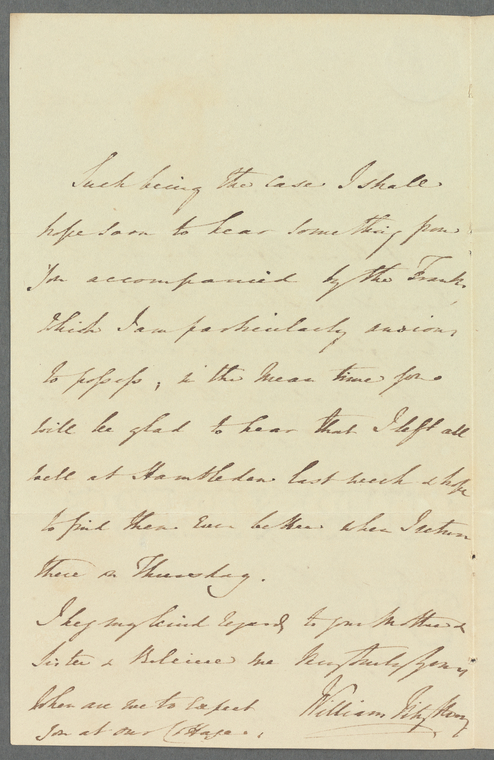 Such being the case I shall
hope soon to hear something from
you accompanied by the Frank,
which I am particularly anxious
to possess, in the mean time you
will be glad to hear that I left all
well at Hambledon last week & hope
to find them even better when I return
there on Thursday.
I beg my kind regards to your Mother &
Sister & Believe me Very truly yours
When are we to expect William Fitz Henry
you at our Cottage.